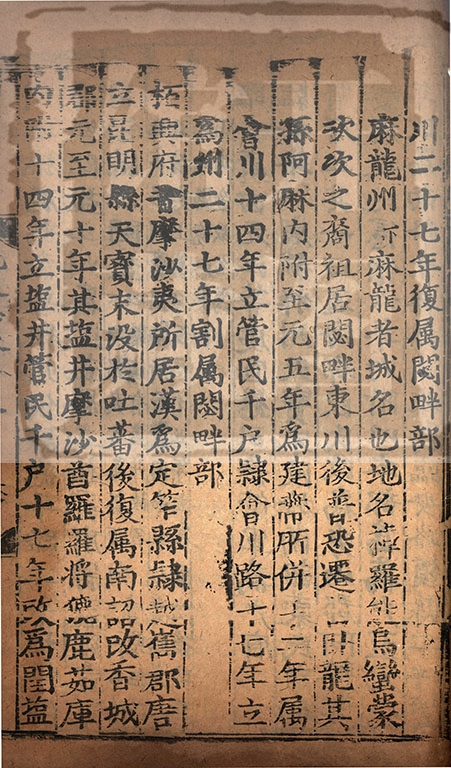 州二十七年復属閟畔部
麻龍州 下 麻龍者城名也地名棹羅能烏蠻蒙
次次之裔祖居閟畔東川後普恐遷 卧龍其
孫阿麻内附至元五年爲建蒂所併十二年属
會川十四年立管民千户隷會川路十七年立
爲州二十七年割属閟畔部
栢興府昔摩沙夷所居漢爲定笮縣隷越嶲郡唐
立昆明縣天寶末没於吐蕃後復属南詔改香城
郡元至元十年其塩井摩沙酋羅羅將獹鹿茹庫
内附十四年立塩井管民千户十七年改爲閏塩